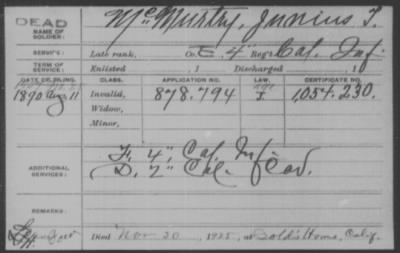 DEAD
NAME OF SOLDIER: McMurtry, Junius T.
SERVICE: Late rank, Co. E. 4" Reg't Cal. Inf.
TERM OF SERVICE: Enlisted , 1 Discharged , 1
DATE OF FILING. CLASS. APPLICATION NO. LAW. CERTIFICATE NO.
1890 Aug 11 Invalid, 878.794 I 1,054.230.
Widow,
Minor,
ADDITIONAL SERVICES: F. 4", Cal. Inf
D. 2" Cal. Cav.
REMARKS:
Died Nov 20, 1925, at Sold's Home, Calif.